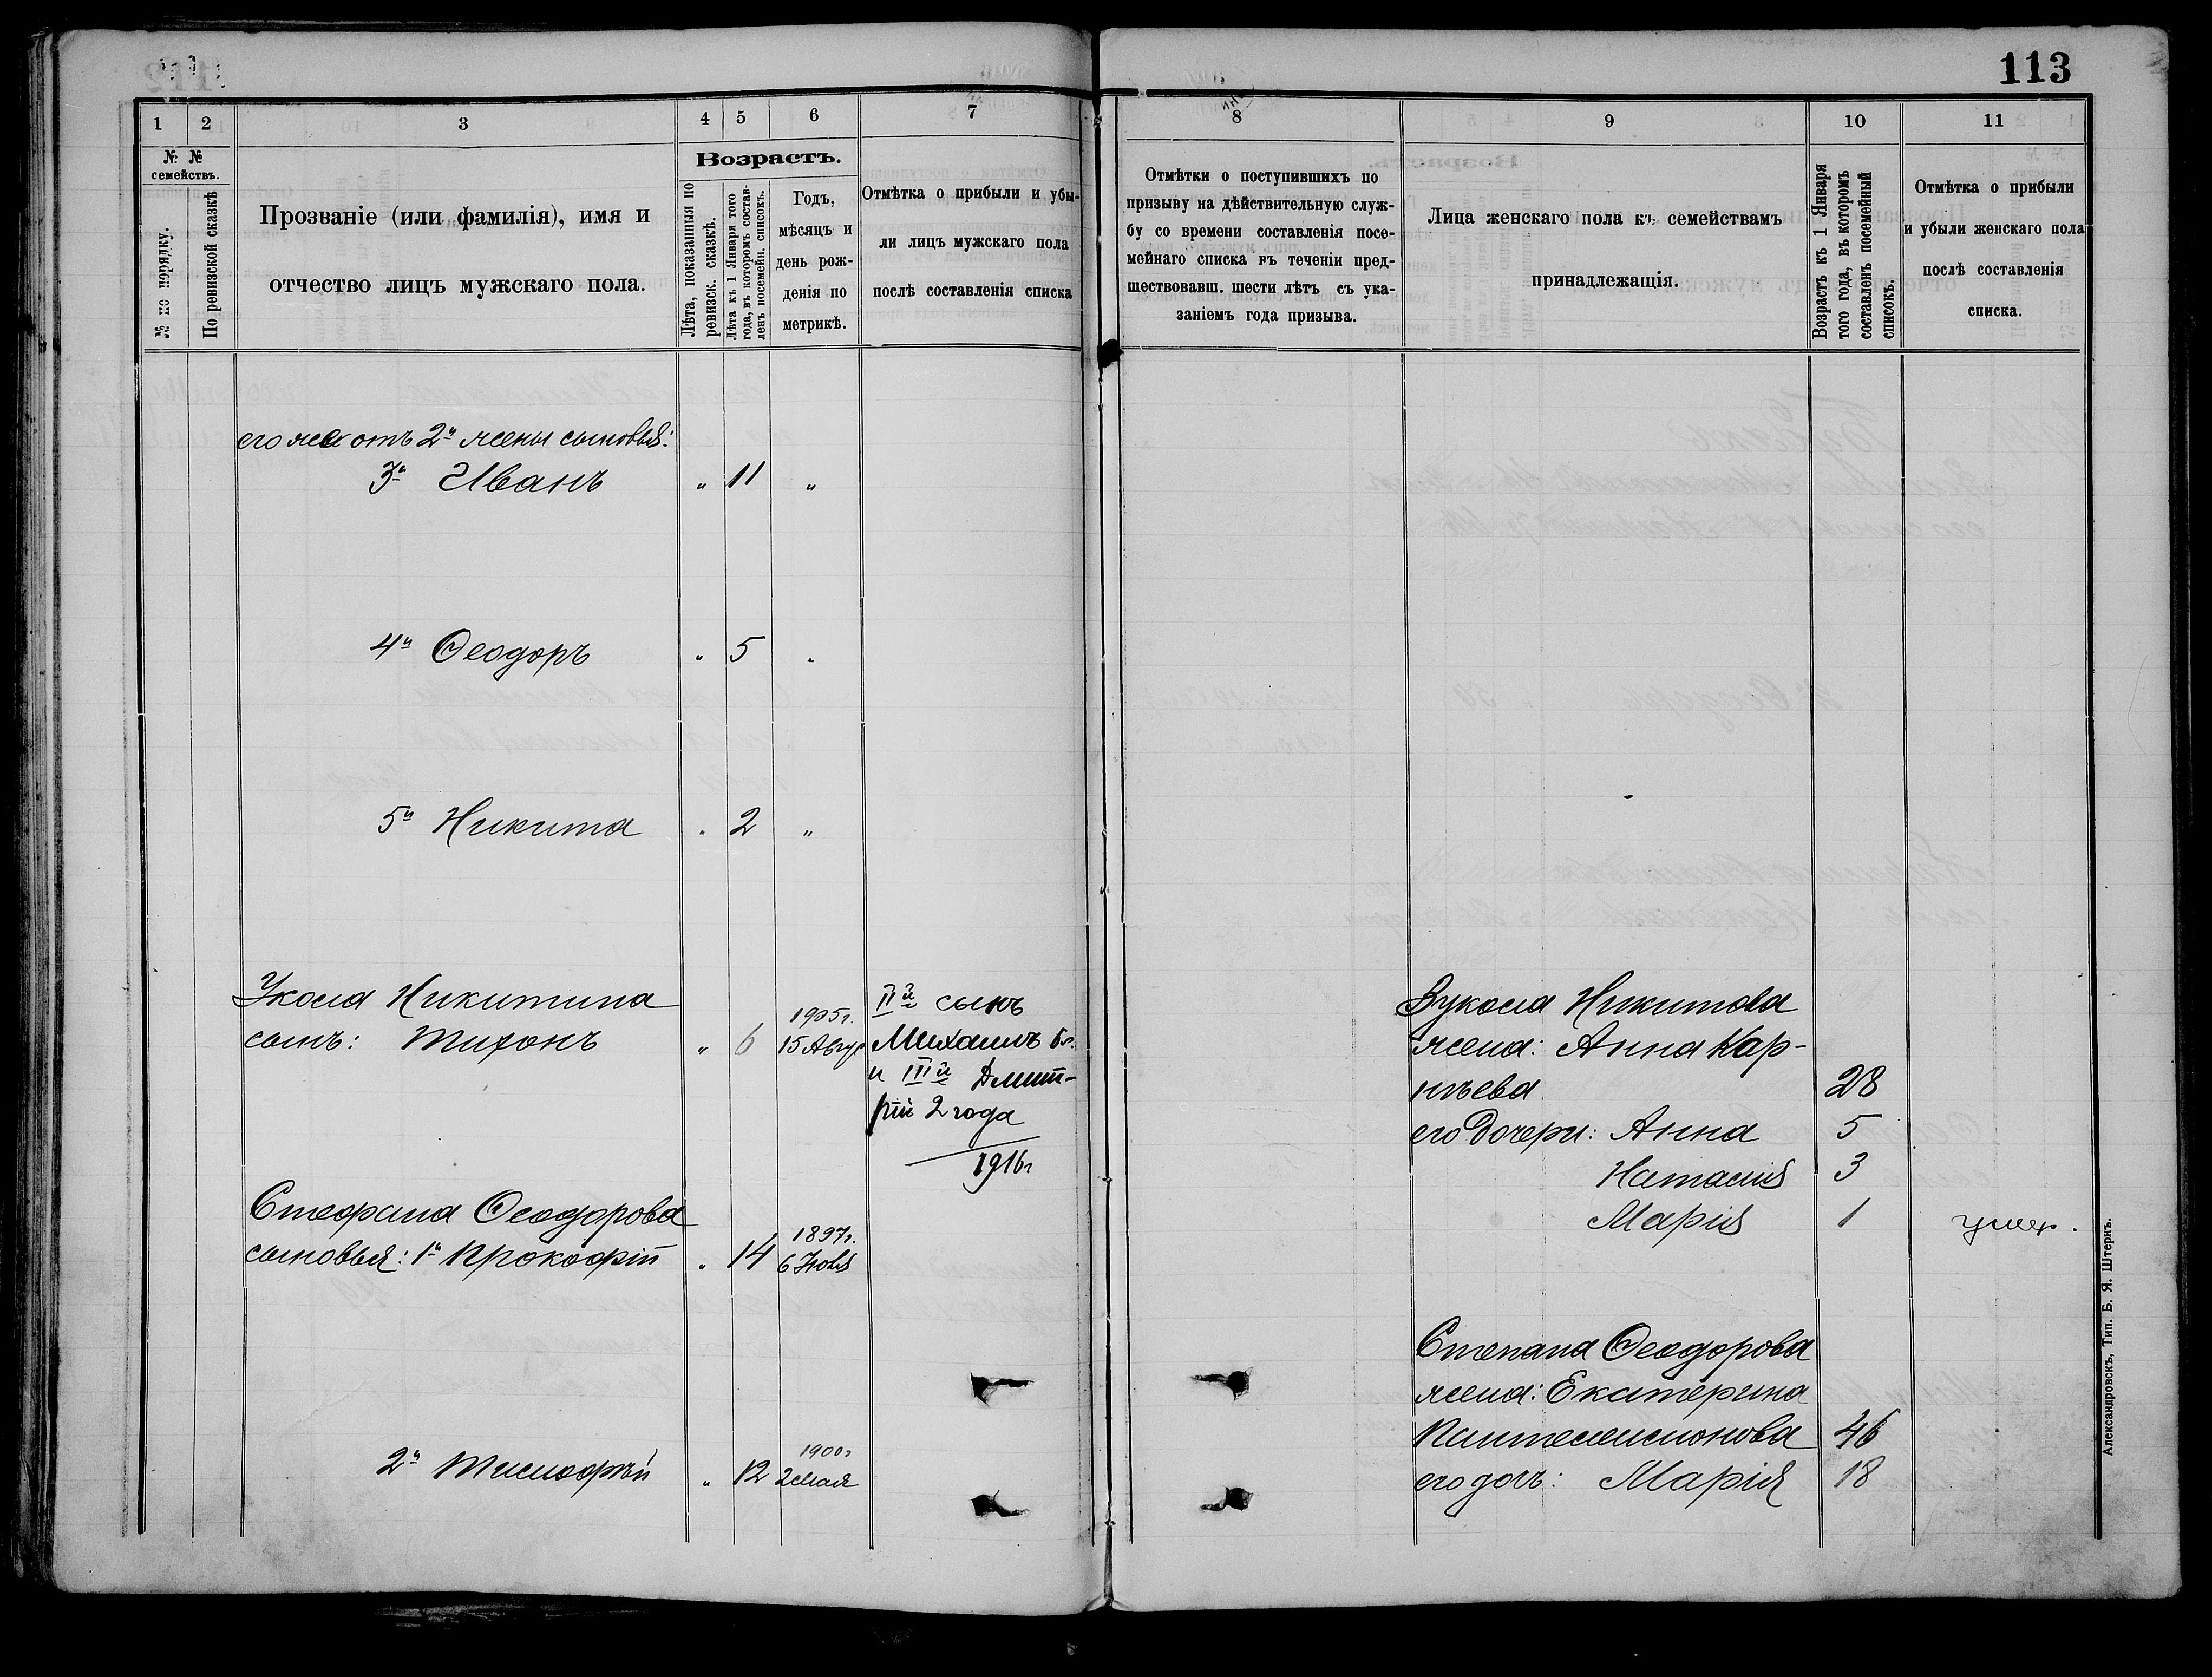 113
1 2 3 4 5 6 7
№ №
семействъ.
№ по порядку.
По ревизской сказкѣ
Прозваніе (или фамилія), имя и
отчество лицъ мужскаго пола.
Возрастъ.
Лѣта, показанныя по
ревизск. сказкѣ.
Лѣта къ 1 Января того
года, въ которомъ состав-
ленъ посемейн. списокъ.
Годъ,
мѣсяцъ и
день рож-
денія по
метрикѣ.
Отмѣтка о прибыли и убы-
ли лицъ мужскаго пола
послѣ составленія списка
его же отъ 2й жены сыновья:
3й Иванъ " 11 "
4й Ѳеодоръ " 5 "
5й Никита " 2 "
Никитина
сынъ: Тихонъ " 6 1905г. 15 Авгус
IIй сынъ
Михаилъ 5 л.
и IIIй Дмит-
рій 2 года
1916г
Стефана Ѳеодорова
сыновья: 1й Прокофій " 14 1897г. 6 Іюля
2й Тимофѣй " 12 1900г 2 Мая
8 9 10 11
Отмѣтки о поступившихъ по
призыву на дѣйствительную служ-
бу со времени составленія посе-
мейнаго списка въ теченіи пред-
шествовавш. шести лѣтъ съ ука-
заніемъ года призыва.
Лица женскаго пола къ семействамъ
принадлежащія.
Возрастъ къ 1 Января
того года, въ которомъ
составленъ посемейный
списокъ.
Отмѣтка о прибыли
и убыли женскаго пола
послѣ составленія
списка.
Никитова
жена: Анна Кар-
нѣева 28
его дочери: Анна 5
Наталія 3
Марія 1 умер.
Степана Ѳеодорова
жена: Екатерина
Пантелеимонова 46
его дочь: Марія 18
Александровскъ, Тип. Б. Я. Штернъ.